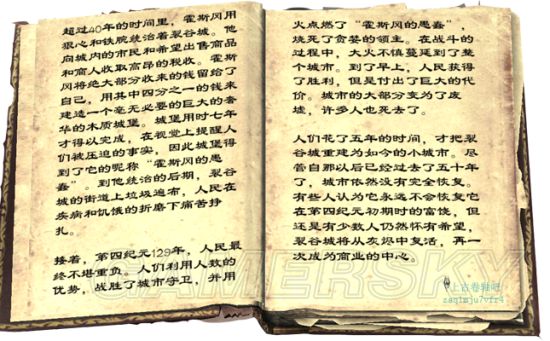 超过40年的时间里，霍斯冈用
狠心和铁腕统治着裂谷城。他
向城内的市民和希望出售商品
和商人收取高昂的税收。霍斯
冈将绝大部分收来的钱留给了
自己，用其中四分之一的钱来
建造一个毫无必要的巨大的奢
华的木质城堡。城堡用时七年
才得以完成，在视觉上提醒人
们被压迫的事实，因此城堡得
到了它的昵称“霍斯冈的愚
蠢”。到他统治的后期，裂谷
城的街道上垃圾遍布，人民在
疾病和饥饿的折磨下痛苦挣
扎。
接着，第四纪元129年，人民最
终不堪重负。人们利用人数的
优势，战胜了城市守卫，并用
火点燃了“霍斯冈的愚蠢”，
烧死了贪婪的领主。在战斗的
过程中，大火不慎蔓延到了整
个城市。到了早上，人民获得
了胜利，但是付出了巨大的代
价。城市的大部分变为了废
墟，许多人也死去了。
人们花了五年的时间，才把裂
谷城重建为如今的小城市。尽
管自那以后已经过去了五十年
了，城市依然没有完全恢复。
有些人认为它永远不会恢复它
在第四纪元初期时的富饶，但
还是有少数人仍然怀有希望，
裂谷城将从灰烬中复活，再一
次成为商业的中心。
GAMERSKY
上古卷轴吧
zaq1mju7vfr4